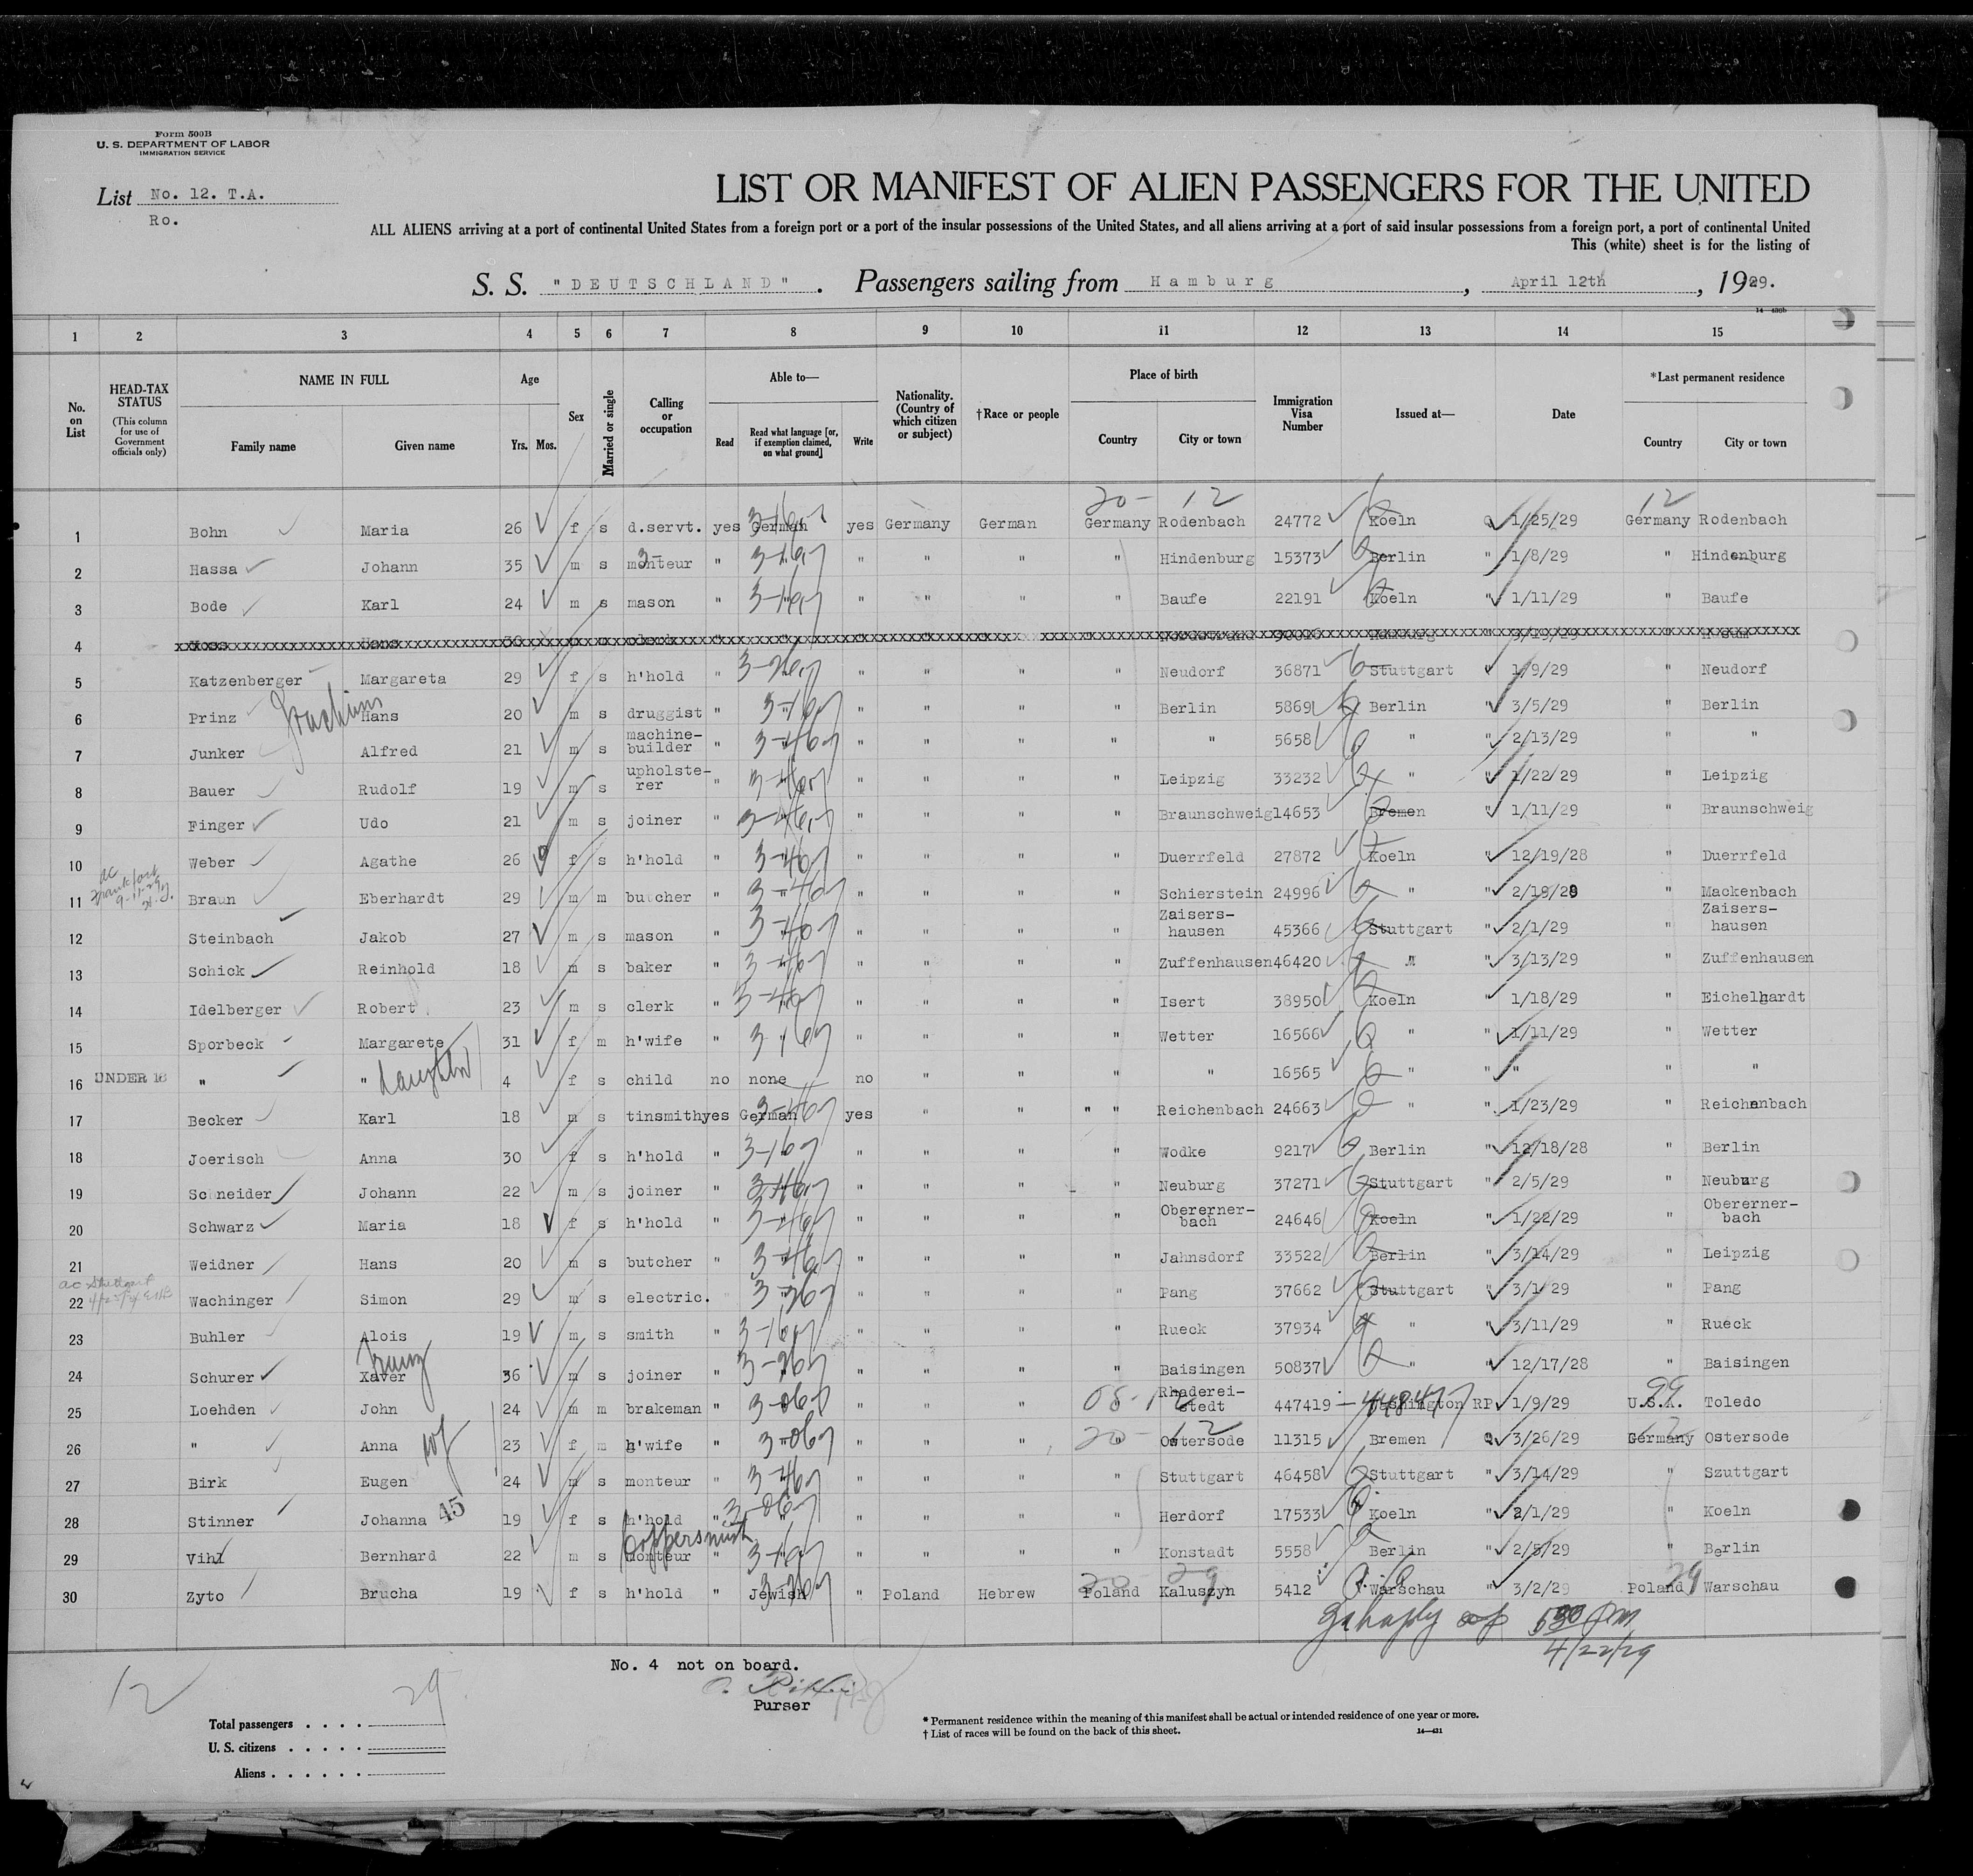 Form 500B
U. S. DEPARTMENT OF LABOR
IMMIGRATION SERVICE
List No. 12. T.A.
Ro.
LIST OR MANIFEST OF ALIEN PASSENGERS FOR THE UNITED
ALL ALIENS arriving at a port of continental United States from a foreign port or a port of the insular possessions of the United States, and all aliens arriving at a port of said insular possessions from a foreign port, a port of continental United
This (white) sheet is for the listing of
S. S. "DEUTSCHLAND". Passengers sailing from Hamburg, April 12th, 1929.
1 2 3 4 5 6 7 8 9 10 11 12 13 14 15
No. on List
HEAD-TAX STATUS (This column for use of Government officials only)
NAME IN FULL Family name Given name
Age Yrs. Mos.
Sex
Married or single
Calling or occupation
Able to— Read Read what language [or, if exemption claimed, on what ground] Write
Nationality. (Country of which citizen or subject)
†Race or people
Place of birth Country City or town
Immigration Visa Number
Issued at—
Date
*Last permanent residence Country City or town
20- 12 12
1 Bohn Maria 26 f s d.servt. yes German yes Germany German Germany Rodenbach 24772 Koeln 1/25/29 Germany Rodenbach
2 Hassa Johann 35 m s monteur " " " " " " Hindenburg 15373 Berlin " 1/8/29 " Hindenburg
3 Bode Karl 24 m s mason " " " " " " Baufe 22191 Koeln " 1/11/29 " Baufe
4
5 Katzenberger Margareta 29 f s h'hold " " " " " " Neudorf 36871 Stuttgart " 1/9/29 " Neudorf
6 Prinz Hans 20 m s druggist " " " " " " Berlin 5869 Berlin " 3/5/29 " Berlin
7 Junker Alfred 21 m s machine-builder " " " " " " " 5658 " " 2/13/29 " "
8 Bauer Rudolf 19 m s upholsterer " " " " " " Leipzig 33232 " " 1/22/29 " Leipzig
9 Finger Udo 21 m s joiner " " " " " " Braunschweig 14653 Bremen " 1/11/29 " Braunschweig
10 Weber Agathe 26 f s h'hold " " " " " " Duerrfeld 27872 Koeln " 12/19/28 " Duerrfeld
11 Braun Eberhardt 29 m m butcher " " " " " " Schierstein 24996 " " 2/19/28 " Mackenbach
12 Steinbach Jakob 27 m s mason " " " " " " Zaisers-hausen 45366 Stuttgart " 2/1/29 " Zaisers-hausen
13 Schick Reinhold 18 m s baker " " " " " " Zuffenhausen 46420 " " 3/13/29 " Zuffenhausen
14 Idelberger Robert 23 m s clerk " " " " " " Isert 38950 Koeln " 1/18/29 " Eichelhardt
15 Sporbeck Margarete 31 f m h'wife " " " " " " Wetter 16566 " " 1/11/29 " Wetter
16 UNDER 16 " " daughter 4 f s child no none no " " " " 16565 " " " " "
17 Becker Karl 18 m s tinsmith yes German yes " " " " Reichenbach 24663 " " 1/23/29 " Reichenbach
18 Joerisch Anna 30 f s h'hold " " " " " " Wodke 9217 Berlin " 12/18/28 " Berlin
19 Schneider Johann 22 m s joiner " " " " " " Neuburg 37271 Stuttgart " 2/5/29 " Neuburg
20 Schwarz Maria 18 f s h'hold " " " " " " Oberernerbach 24646 Koeln " 1/22/29 " Oberernerbach
21 Weidner Hans 20 m s butcher " " " " " " Jahnsdorf 33522 Berlin " 3/14/29 " Leipzig
22 Wachinger Simon 29 m s electric. " " " " " Pang 37662 Stuttgart " 3/1/29 " Pang
23 Buhler Alois 19 m s smith " " " " " " Rueck 37934 " " 3/11/29 " Rueck
24 Schurer Franz Xaver 36 m s joiner " " " " " " Baisingen 50837 " " 12/17/28 " Baisingen
25 Loehden John 24 m m brakeman " " " " " Rhaderei-stedt 447419 Washington RP 1/9/29 U.S.A. Toledo
26 " Anna wf 23 f m h'wife " " " " " " Ostersode 11315 Bremen 3/26/29 Germany Ostersode
27 Birk Eugen 24 m s monteur " " " " " " Stuttgart 46458 Stuttgart " 3/14/29 " Szuttgart
28 Stinner Johanna 45 19 f s h'hold " " " " " " Herdorf 17533 Koeln " 2/1/29 " Koeln
29 Vihl Bernhard 22 m s monteur Coppersmith " " " " " " Konstadt 5558 Berlin " 2/5/29 " Berlin
30 Zyto Brucha 19 f s h'hold " Jewish " Poland Hebrew Poland Kaluszyn 5412 Warschau " 3/2/29 Poland Warschau
5 30 pm
4/22/29
No. 4 not on board.
Purser
12 29
Total passengers
U. S. citizens
Aliens
* Permanent residence within the meaning of this manifest shall be actual or intended residence of one year or more.
† List of races will be found on the back of this sheet.
14—421